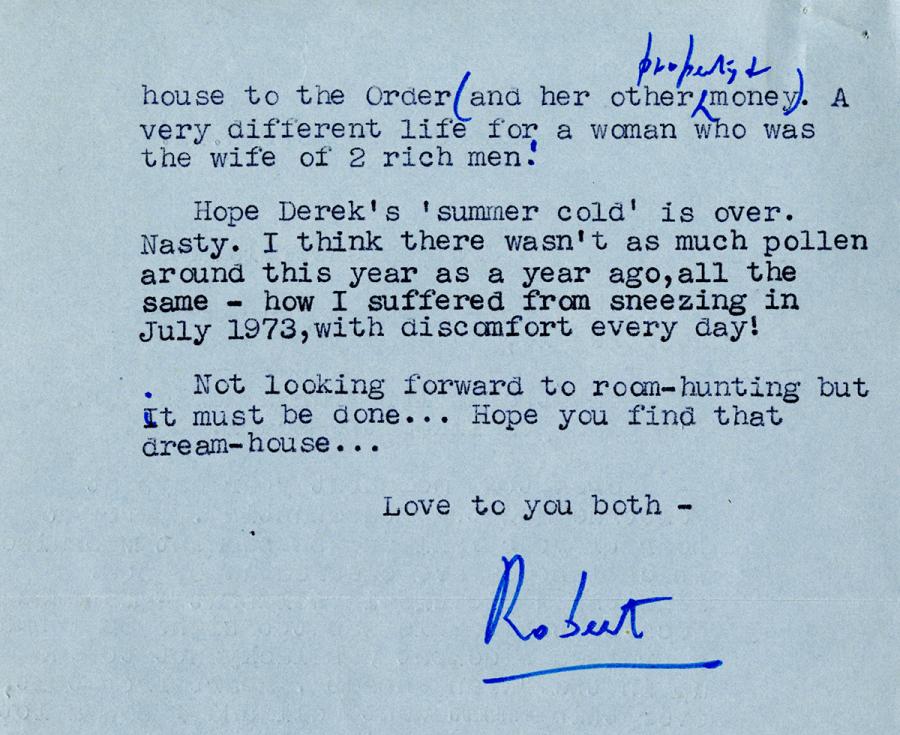 property &
house to the Order (and her other, money). A
very different life for a woman who was
the wife of 2 rich men!
Hope Derek's 'summer cold' is over.
Nasty. I think there wasn't as much pollen
around this year as a year ago,all the
same - how I suffered from sneezing in
July 1973,with discomfort every day!
Not looking forward to room-hunting but
it must be done... Hope you find that
dream-house...
Love to you both -
Robert